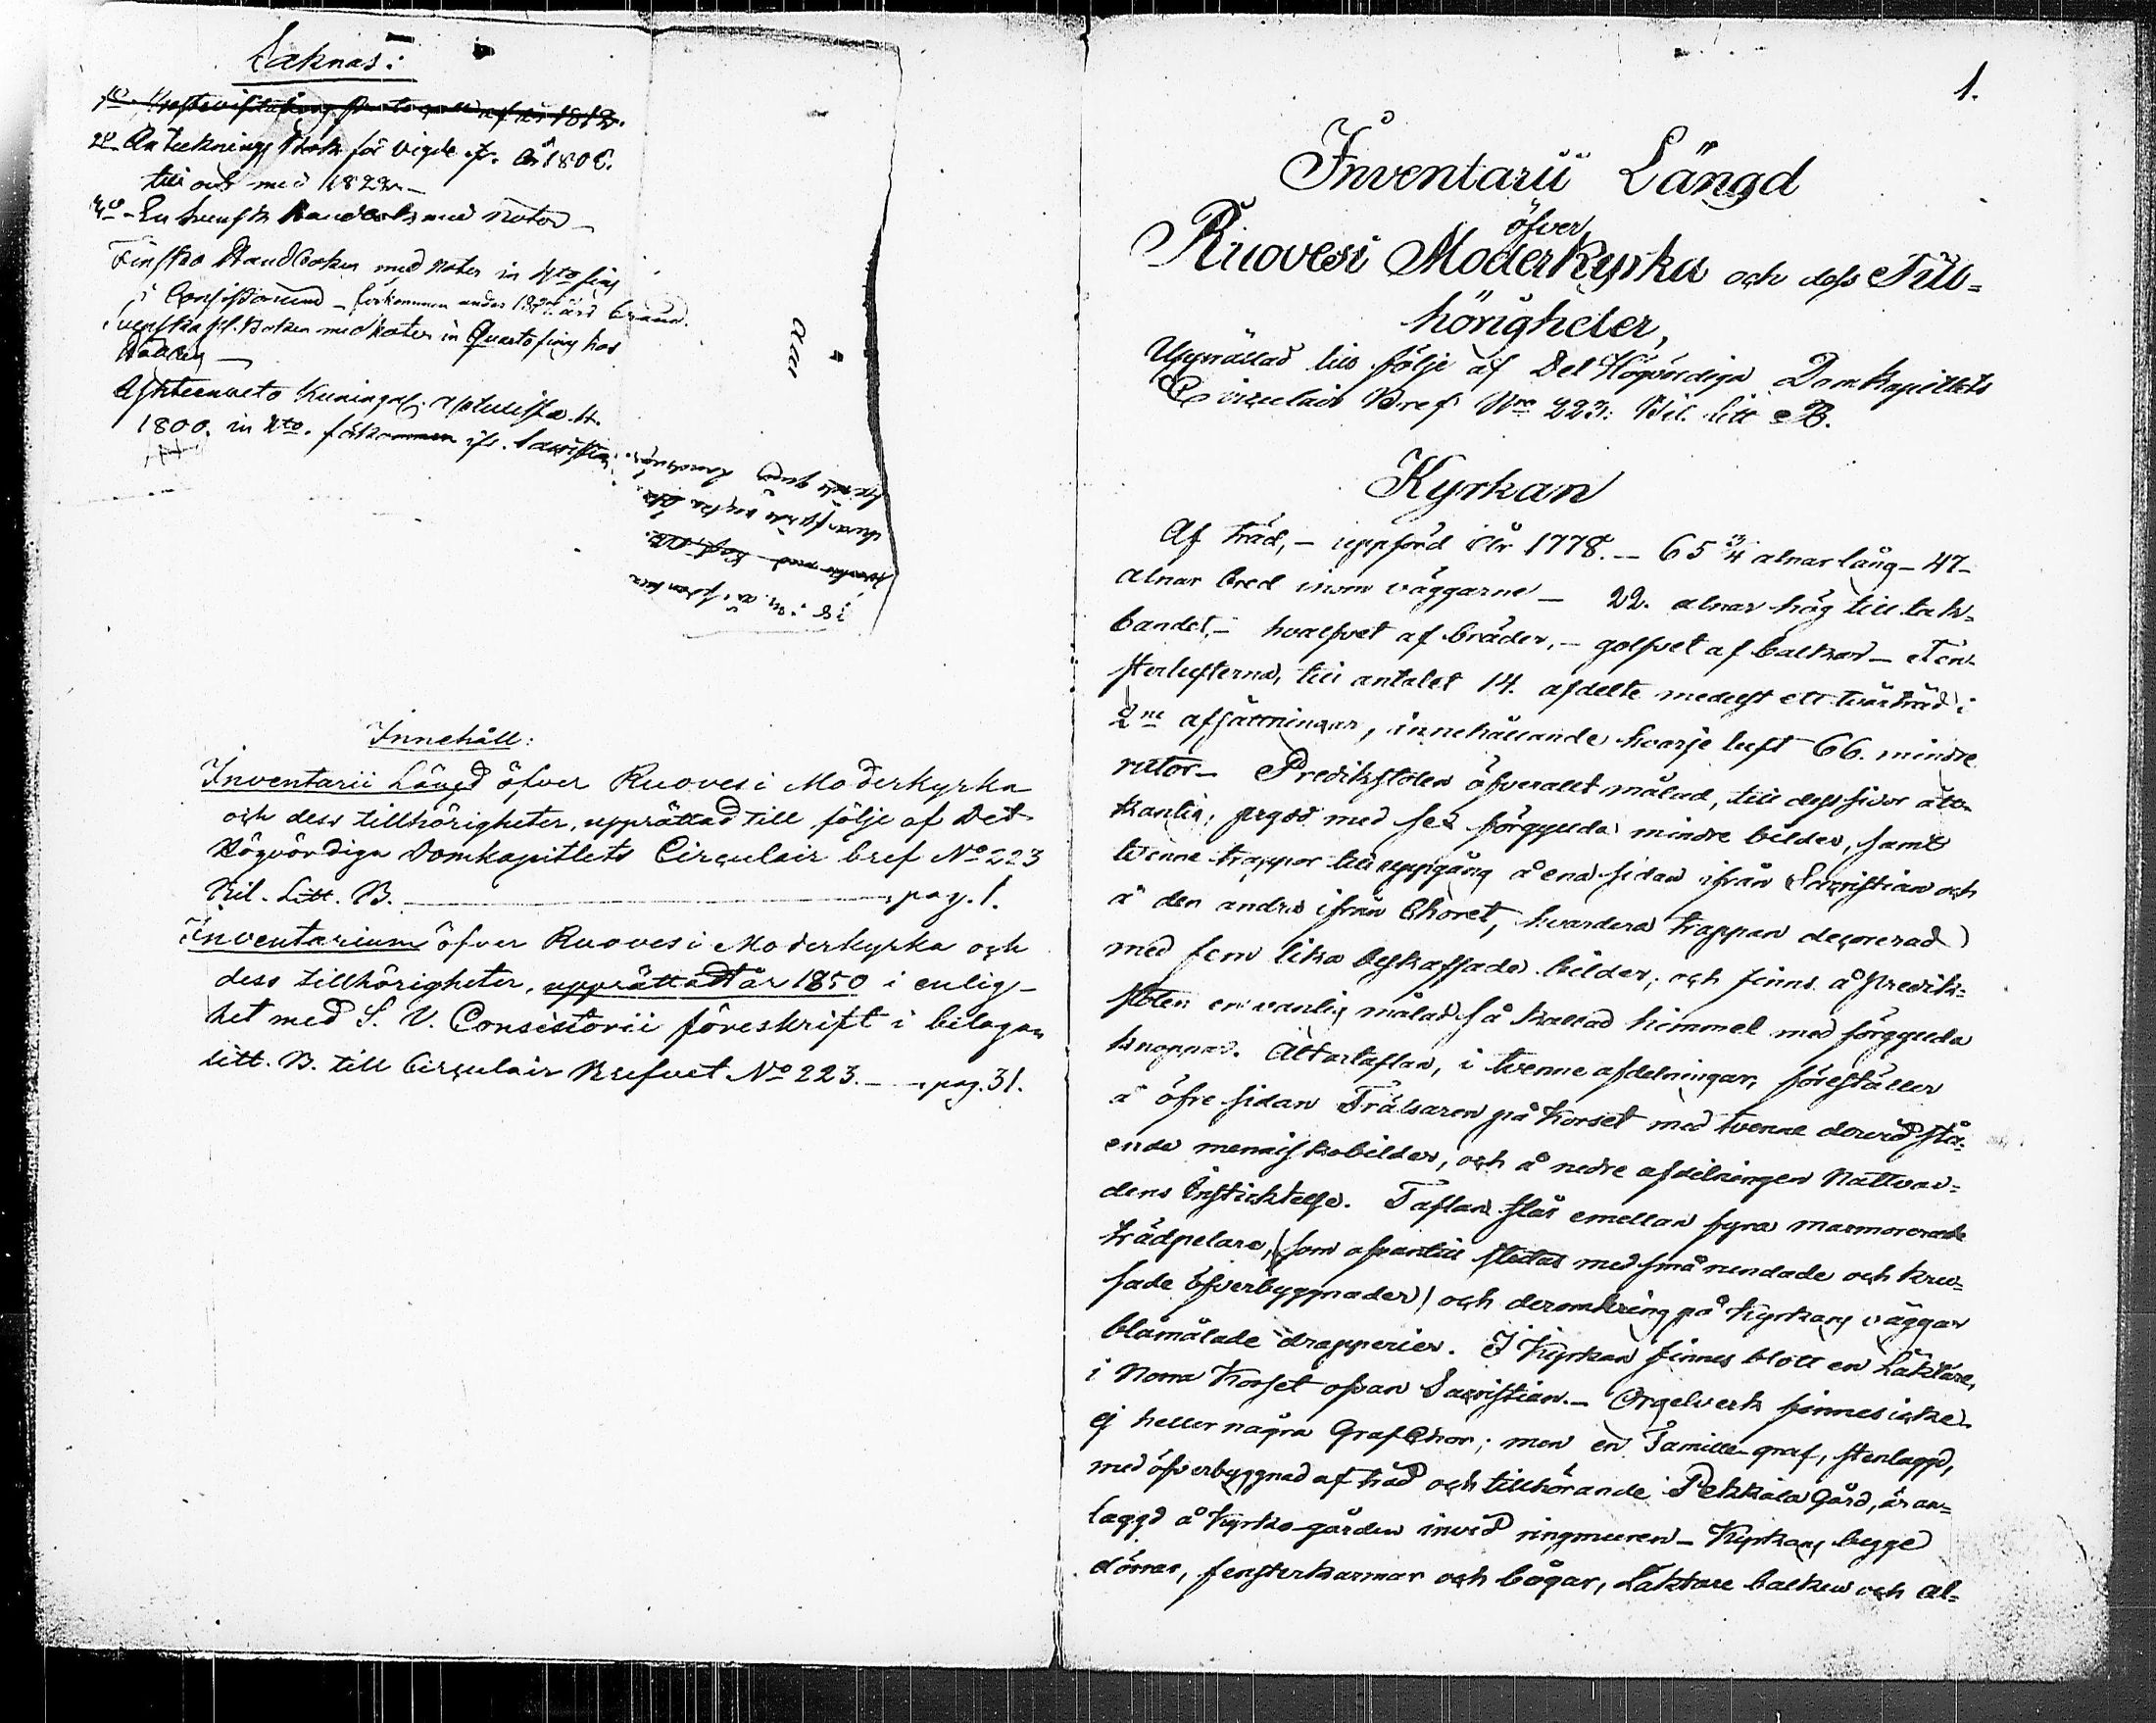 Saknas:
1o Prostevisitations Protocoll af år 1812.
2o Anteknings Bok för vigde fr. år 180
till och med 1822.
3o En Svensk Handbok med noter
Finska Handboken med noter in 4to fins
i Consistorium – förkommen under
Svenska H. Boken med noter in Quarto fins hos

1800. in 4to. förkommen ifr. Sacristian.
Innehåll:
Inventarii Längd öfver Ruovesi Moderkyrka
och dess tillhörigheter, upprättad till följe af Det
Högvördiga Domkapitlets Circulair bref No 223
Bil. Litt. B. pag. 1.
Inventarium öfver Ruovesi Moderkyrka och
dess tillhörigheter, upprättadt år 1850 i enlig-
het med S. V. Consistorii föreskrift i bilagan
litt. B. till Circulair Brefvet No 223. pag. 31.
1.
Inventarii Längd
öfver
Ruovesi Moderkyrka och dess Till=
hörigheter,
Upprättad till följe af Det Högvördiga Domkapitlets
Circulair Bref Nro 223: Bil. litt B.
Kyrkan
Af träd, – uppförd år 1778. – 65 3/4 alnar lång – 47
alnar bred inom väggarne – 22. alnar hög till tak=
bandet, – hvalfvet af bräder, – golfvet af balkar – Fen-
sterlufterna, till antalet 14. afdelte medelst ett tvärträd i
2ne afsättningar, innehållande hvarje luft 66. mindre
rutor – Predikstolen öfverallt målad, till dess sidor åtta
kantig, prydd med sex förgyllda mindre bilder, samt
tvenne trappor till uppgång å ena sidan ifrån Sacristian och
å den andra ifrån Choret, hvardera trappan decorerad
med fem lika beskaffade bilder; och finns å Predik=
stolen en vanlig målad så kallad himmel med förgyllda
knoppar. Altartaflan, i tvenne afdelningar, föreställer
å öfre sidan Frälsaren på korset med tvenne dervid stå=
ende menniskobilder, och å nedre afdelningen Nattvar=
dens Instiktelse. Taflan står emellan fyra marmorerade
trädpelare, (som ofvantill slutas med små rundade och kru-
sade öfverbyggnader) och deromkring på Kyrkans väggar
blåmålade drapperier. I Kyrkan finnes blott en Läktare,
i Norra Korset ofvan Sacristian. – Orgelverk finnes icke
ej heller några Graf Chor; men en Famille-graf, stenlaggd,
med öfverbyggnad af träd och tillhörande Pekkala Gård, är an=
laggd å Kyrko-gården invid ringmuren – Kyrkans begge
dörrar, fensterkarmar och bågar, Läktare balken och al=